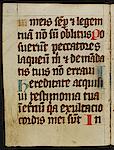 meis semp̱ ⁊ legem
tuā nō sū oblitus Po
suerūt peccatores
laqueū m̄ ⁊ de māda
tis tuis nō erraui
Hereditate acquisi
ui testimonia tua
ī eternū qa exultacio
cordis mei sūt In